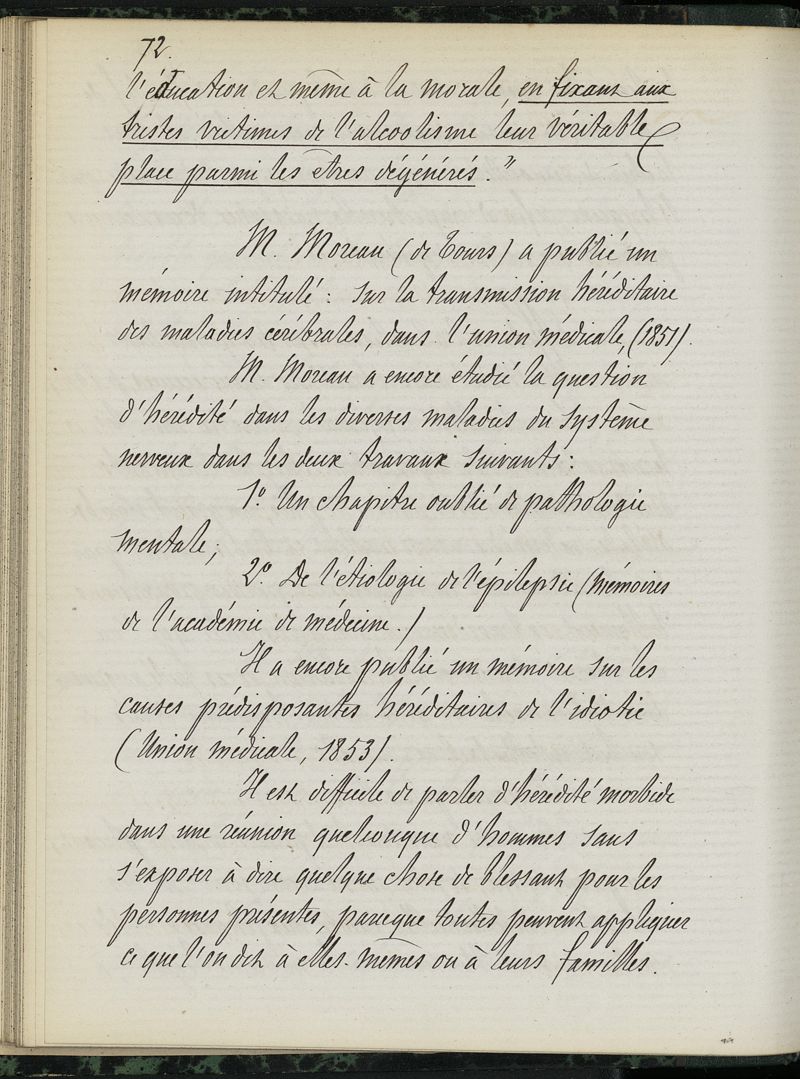 72.
l'éducation et même à la morale, en fixant aux
tristes victimes de l'alcoolisme leur véritable
place parmi les êtres dégénérés."
M. Moreau (de Tours) a publié un
mémoire intitulé : sur la transmission héréditaire
des maladies cérébrales, dans l'union médicale, (1851).
M. Moreau a encore étudié la question
d'hérédité dans les diverses maladies du système
nerveux dans les deux travaux suivants :
1º. Un chapitre oublié de pathologie
mentale ;
2º. De l'étiologie de l'épilepsie (Mémoires
de l'académie de médecine.)
Il a encore publié un mémoire sur les
causes prédisposantes héréditaires de l'idiotie
(Union médicale, 1853).
Il est difficile de parler d'hérédité morbide
dans une réunion quelconque d'hommes sans
s'exposer à dire quelque chose de blessant pour les
personnes présentes, parceque toutes peuvent appliquer
ce que l'on dit à elles-mêmes ou à leurs familles.